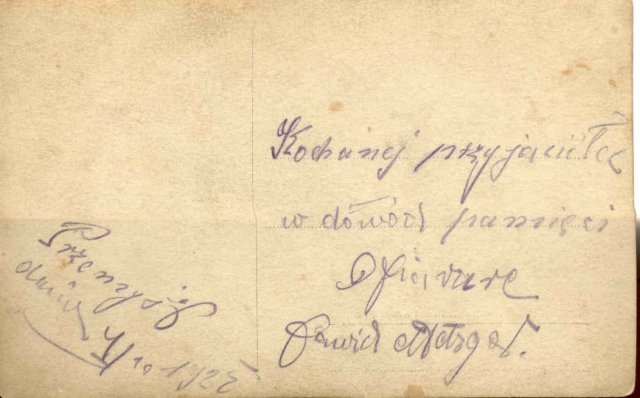 Kochanej przyjaciółce
w dówód pamięci
Ofiaruje
Dawid
Przemyśl
dnia
4/10 1925